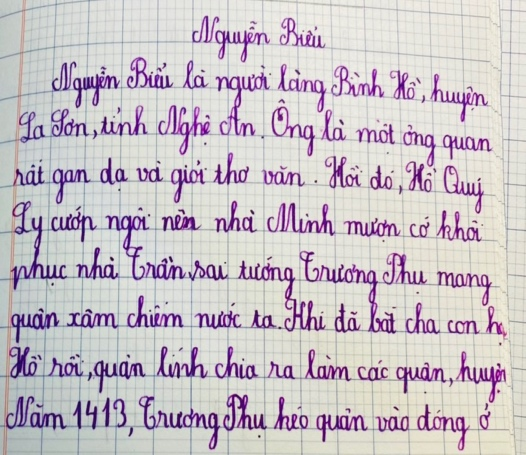 Nguyễn Biểu
Nguyễn Biểu là người làng Bình Hồ, huyện
La Sơn, tỉnh Nghệ An. Ông là một ông quan
rất gan dạ và giỏi thơ văn. Hồi đó, Hồ Quý
Ly cướp ngôi nên nhà Minh mượn cớ khôi
phục nhà Trần, sai tướng Trương Phụ mang
quân xâm chiếm nước ta. Khi đã bắt cha con họ
Hồ rồi, quân lính chia ra làm các quận, huyện
Năm 1413, Trương Phụ kéo quân vào đóng ở